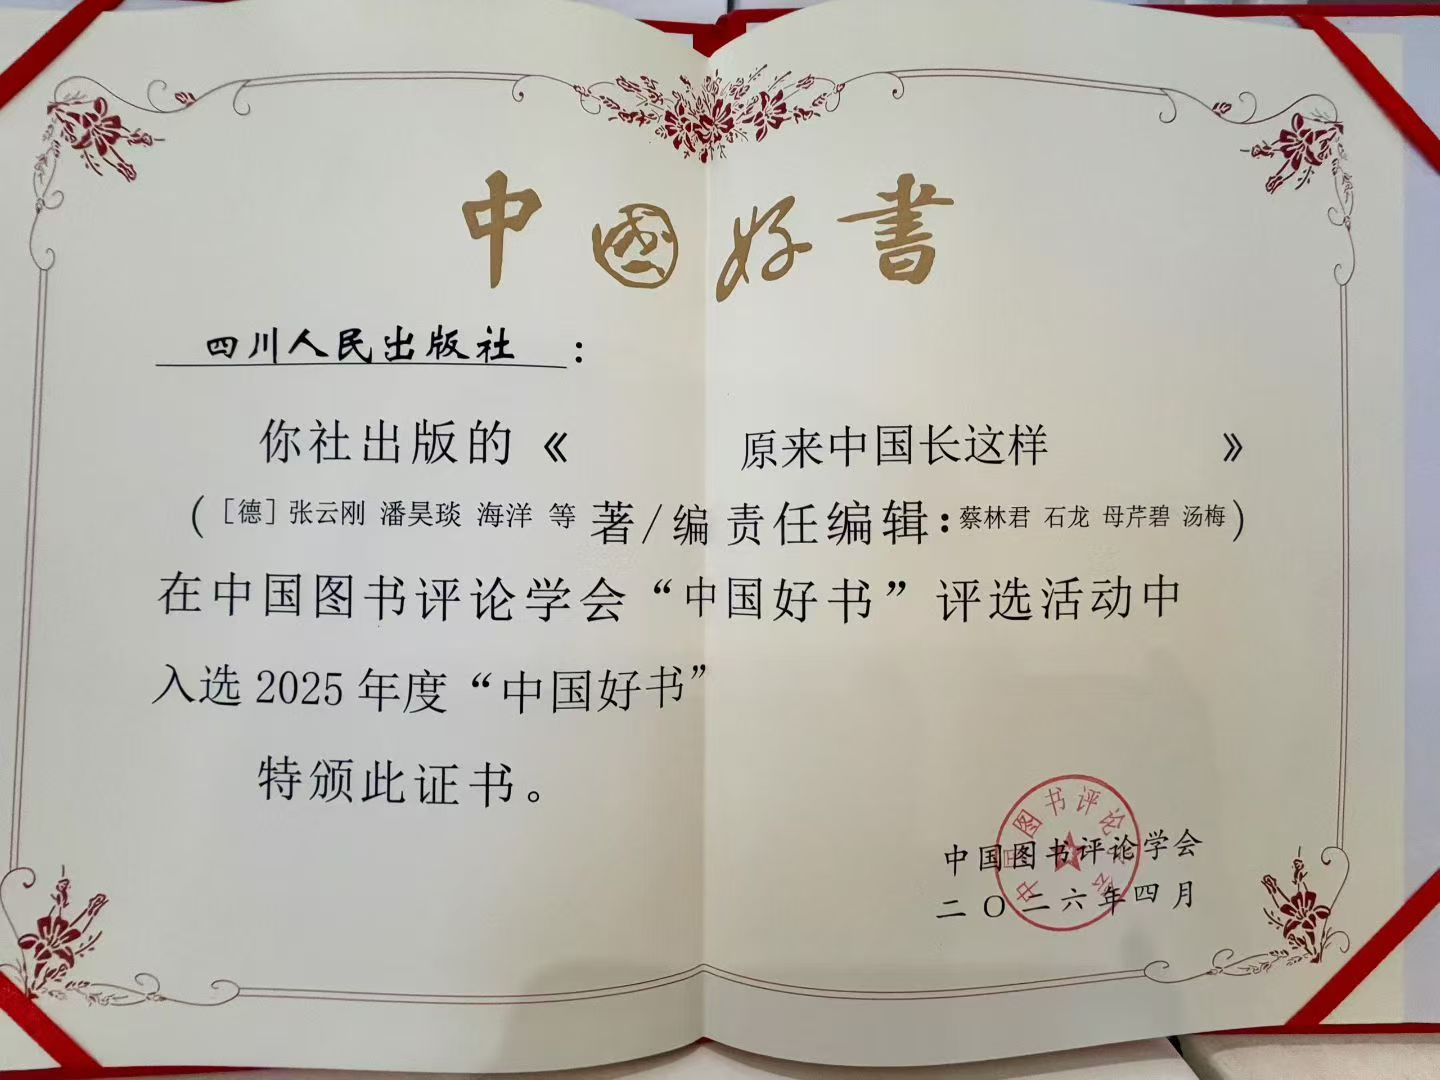 中國好書
四川人民出版社：
你社出版的《 原来中国长这样 》
（［德］张云刚 潘昊琰 海洋 等 著/编 责任编辑：蔡林君 石龙 母芹碧 汤梅）
在中国图书评论学会“中国好书”评选活动中
入选 2025 年度“中国好书”
特颁此证书。
中国图书评论学会
二〇二六年四月
中国图书评论学会